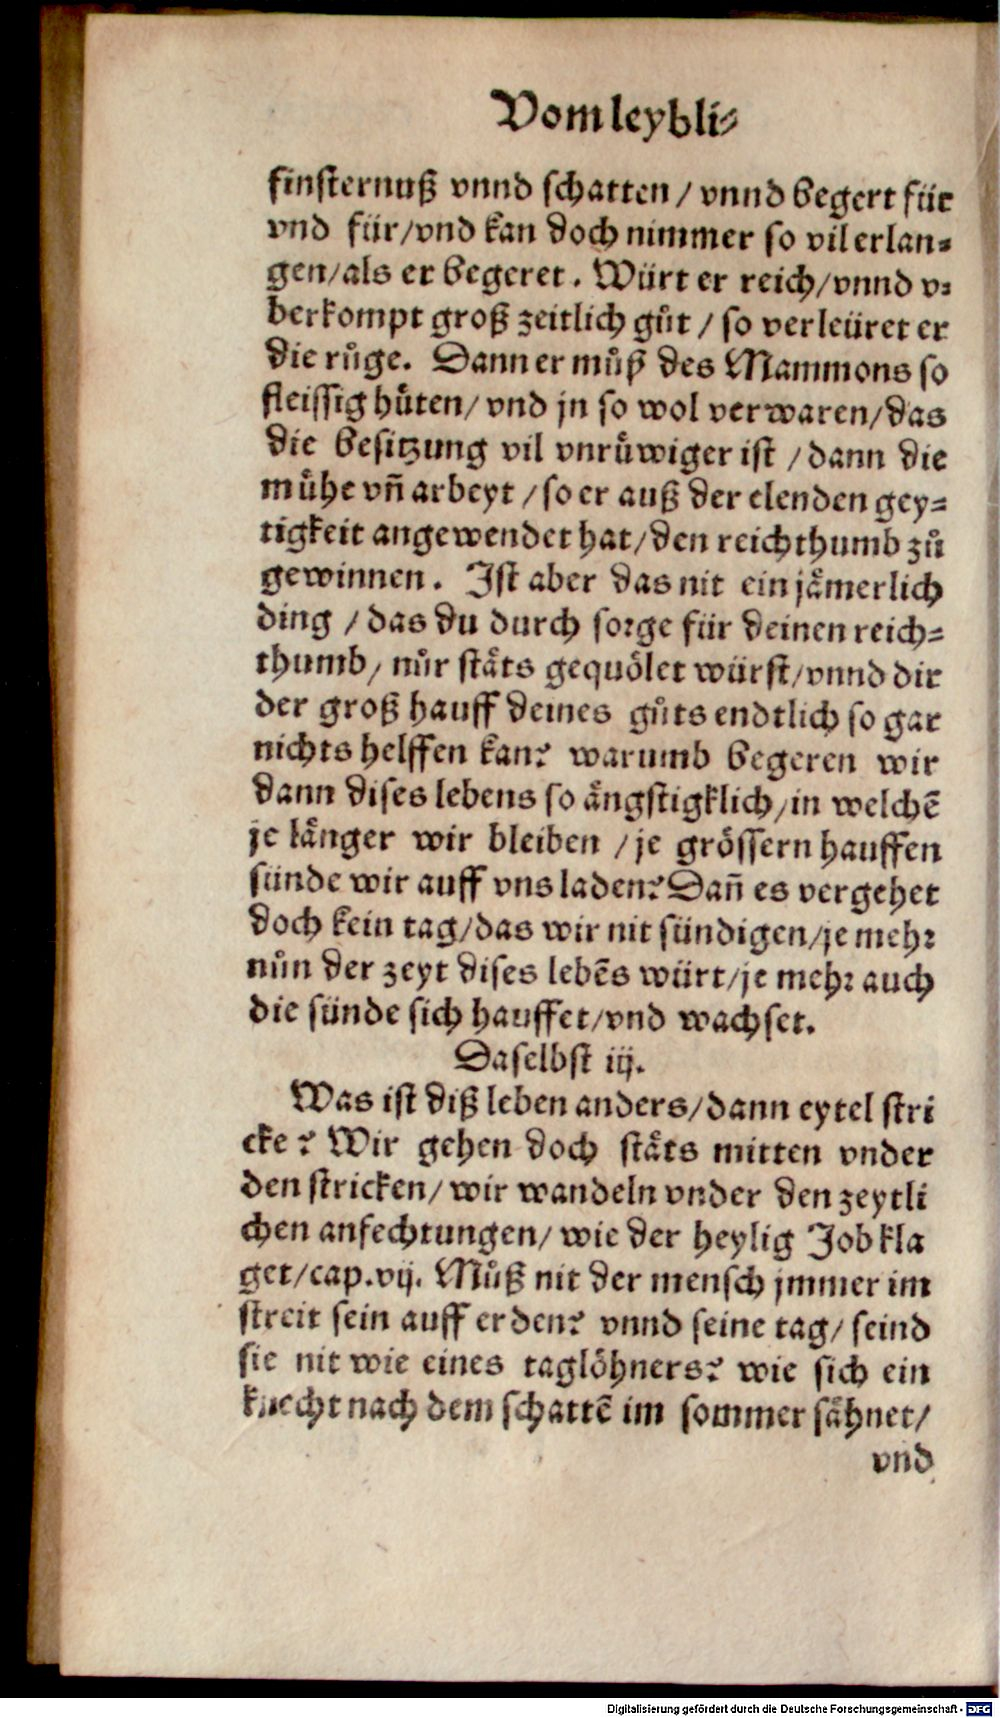 Vom leybli⸗
finsternuß vnnd schatten / vnnd begert für
vnd für/vnd kan doch nimmer so vil erlan⸗
gen/als er begeret. Würt er reich/vnnd v⸗
berkompt groß zeitlich gůt / so verleüret er
die růge. Dann er můß des Mammons so
fleissig hůten/ vnd jn so wol verwaren/das
die besitzung vil vnrůwiger ist /dann die
můhe vñ arbeyt /so er auß der elenden gey⸗
tigkeit angewendet hat/den reichthumb zů
gewinnen. Ist aber das nit ein jämerlich
ding /das du durch sorge für deinen reich⸗
thumb/ nůr stäts gequölet würst/vnnd dir
der groß hauff deines gůts endtlich so gar
nichts helffen kan? warumb begeren wir
dann dises lebens so ängstigklich/in welchẽ
je länger wir bleiben /je grössern hauffen
sünde wir auff vns laden? Dañ es vergehet
doch kein tag/das wir nit sündigen/je mehr
nůn der zeyt dises lebẽs würt/je mehr auch
die sünde sich hauffet/vnd wachset.
Daselbst iij.
Was ist diß leben anders/dann eytel stri
cke? Wir gehen doch stäts mitten vnder
den stricken/ wir wandeln vnder den zeytli
chen anfechtungen/ wie der heylig Job kla
get/cap.vij. Můß nit der mensch jmmer im
streit sein auff erden? vnnd seine tag/ seind
sie nit wie eines taglöhners? wie sich ein
knecht nach dem schattẽ im sommer sähnet/
vnd
Digitalisierung gefördert durch die Deutsche Forschungsgemeinschaft - DFG